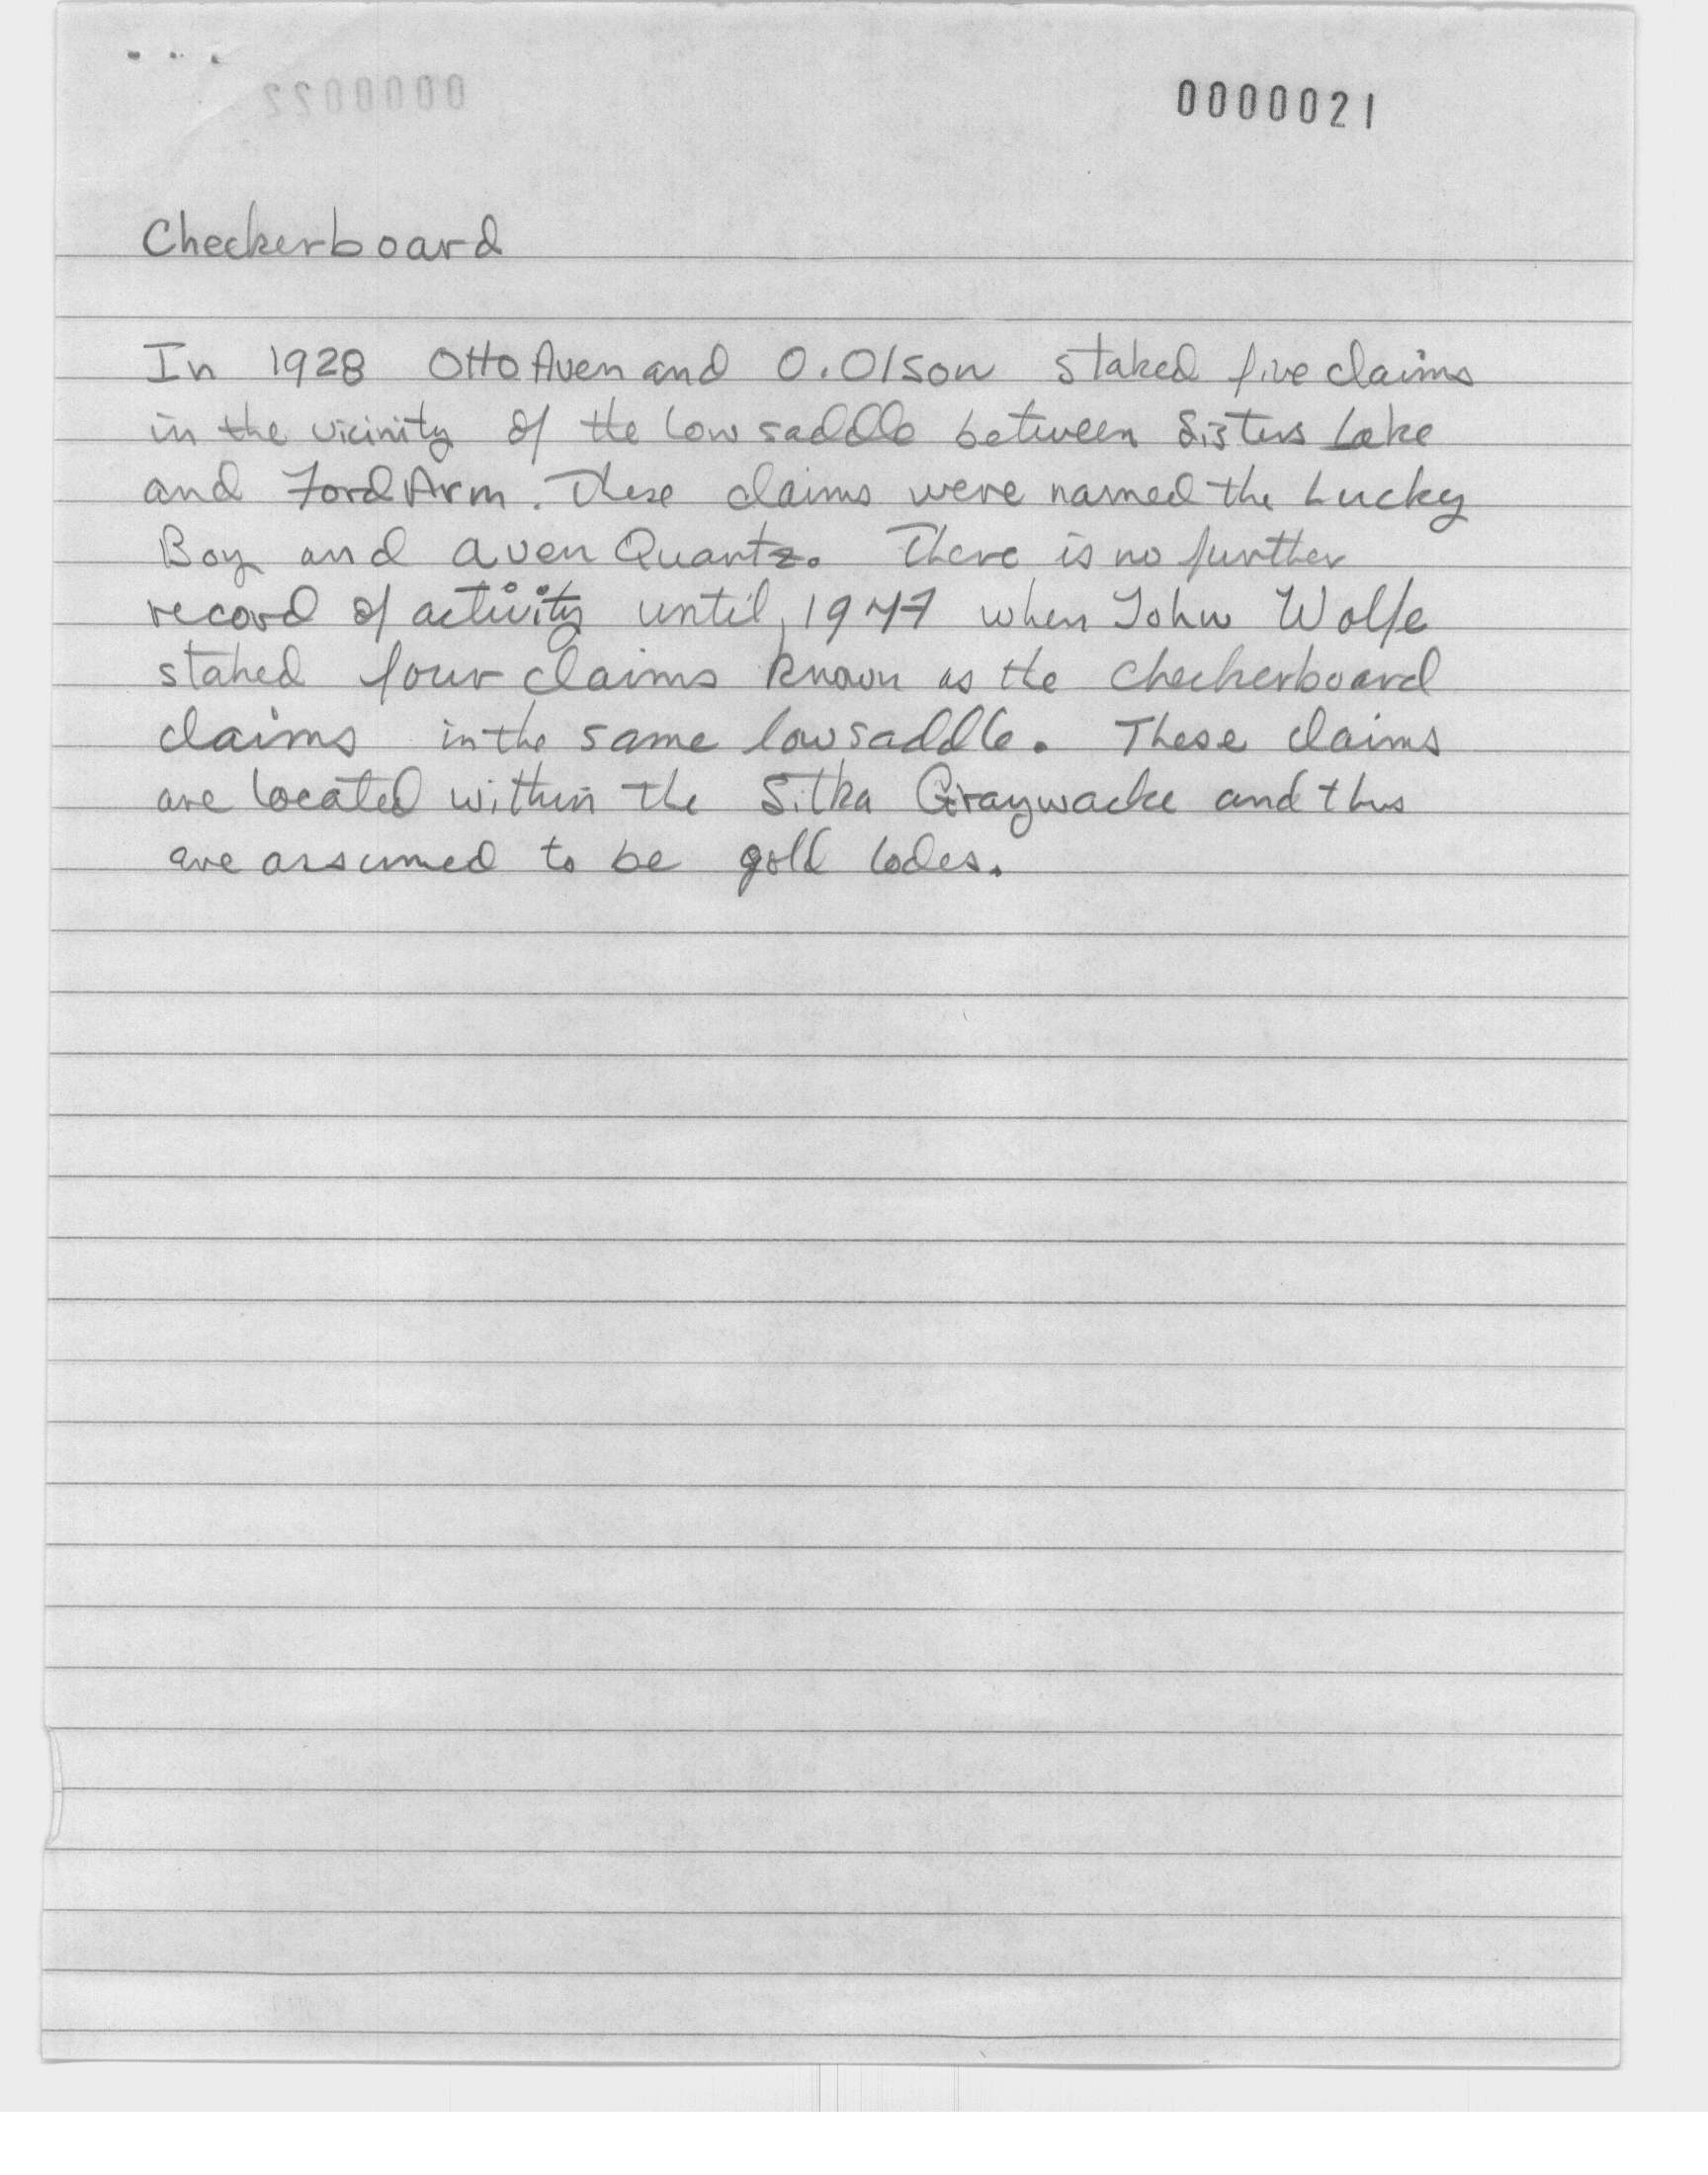 0000021
Checkerboard
In 1928 Otto Aven and O. Olson staked five claims
in the vicinity of the low saddle between Sisters Lake
and Ford Arm. These claims were named the Lucky
Boy and Aven Quartz. There is no further
record of activity until, 1947 when John Wolfe
staked four claims known as the checkerboard
claims in the same low saddle. These claims
are located within the Sitka Graywacke and thus
are assumed to be gold lodes.